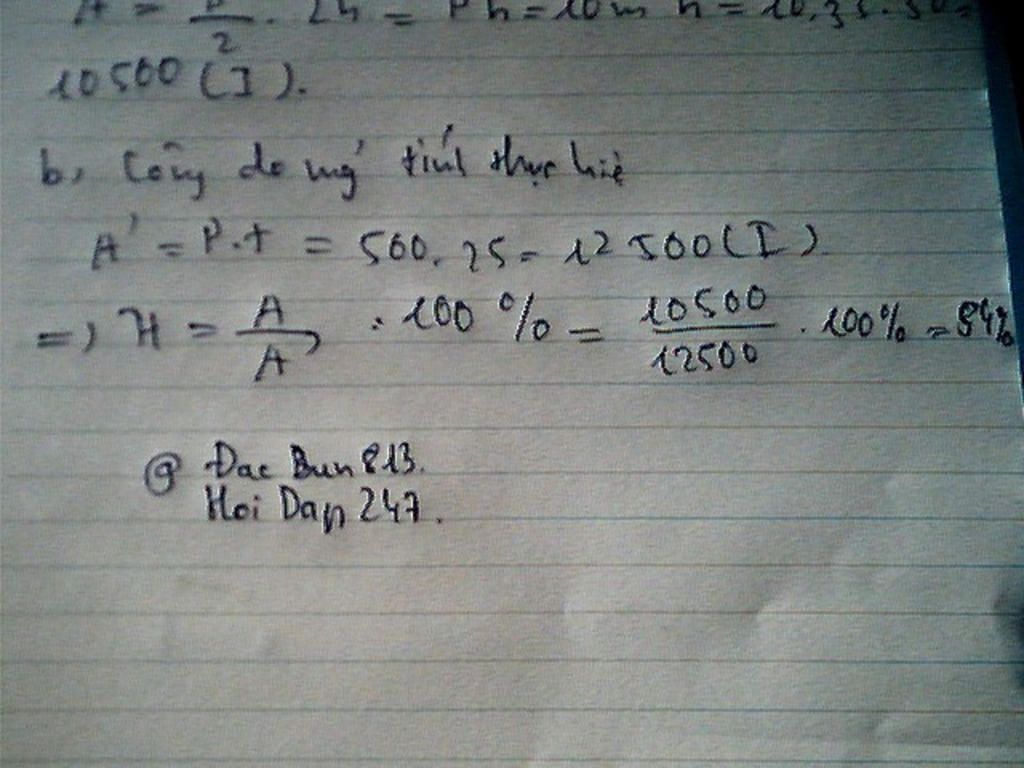 A = P/2 . 2h = Ph = 10m h = 10.35.30 =
10500 (J).
b, Công do máy tính thực hiệ
A' = P.t = 500.25 = 12500 (J)
=> H = A/A' . 100% = 10500/12500 . 100% = 84%
@ Dac Bun 813.
Hoi Dap 247.